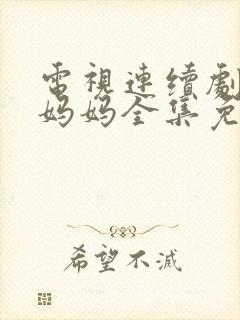 電視連續劇
妈妈全集免
希望不滅